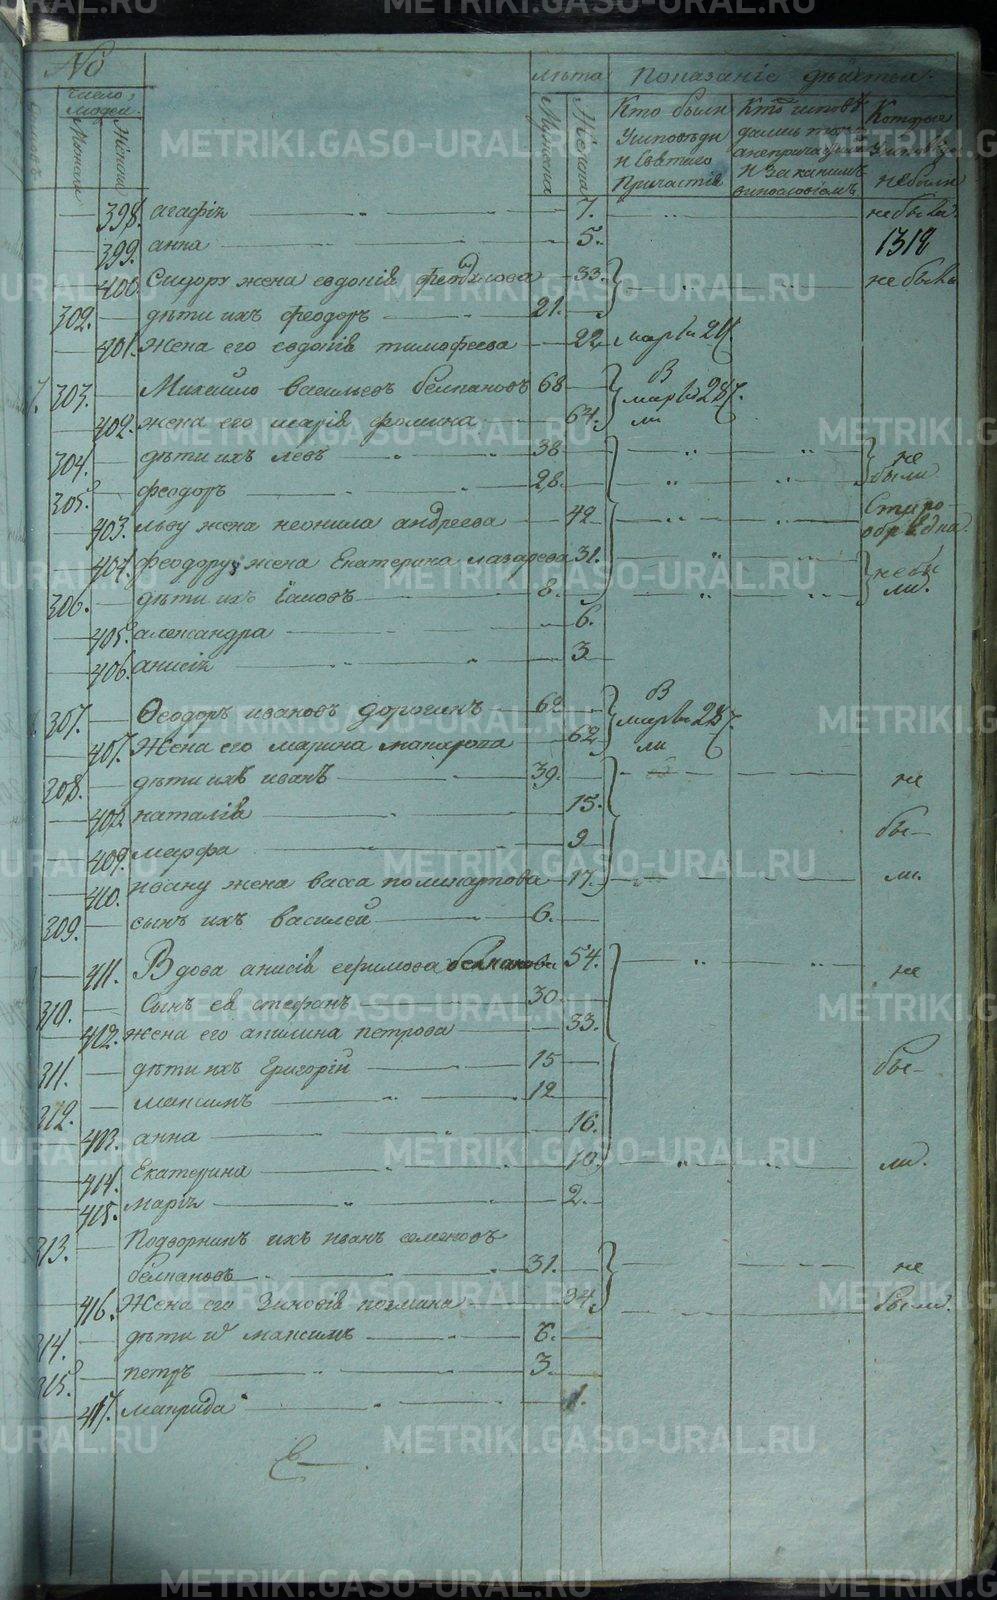 № лѣта Показаніе дѣйства.
число людей.
Мужеска Женска
Кто были У исповѣди И Святаго Причастія
Которые У исповѣди не были
398. агафія 7. не была.
399. анна 5. 1318
400. Сидору жена евдокія феодулова 33. не была
302. дѣти ихъ феодоръ 21.
401. жена его евдокія тимофеева 22. марта 21
303. Михайло васильевъ белпановъ 68 В марта 28
402. жена его марія фомина 64. ли
304. дѣти ихъ левъ 38. не
305. феодоръ 28. были
403. льву жена неонила андреева 42 Старо
404. феодору жена Екатерина лазарева 31. небы
306. дѣти ихъ Іаковъ 8. ли.
405. александра 6.
406. анисія 3
307. Ѳеодоръ ивановъ дорогинъ 62 В марта 28
407. Жена его марина макарова 62 ли
308. дѣти ихъ иванъ 39. не
408. наталія 15.
409. марфа 9 бы-
410. ивану жена васса поликарпова 17. ли.
309. сынъ ихъ василей 6.
411. Вдова анисія ефимова белпанова 54. не
310. Сынъ ея стефанъ 30
402. жена его акилина петрова 33.
311. дѣти ихъ Григорій 15 бы-
312. максимъ 12
403. анна 16.
414. Екатерина 10. ли.
415. марія 2.
313. Подворникъ ихъ иванъ семеновъ
белпановъ 31. не
416. Жена его Зиновія козмина 34 были.
314. дѣти максимъ 6.
315. петръ 3.
417. макрида 1.
METRIKI.GASO-URAL.RU